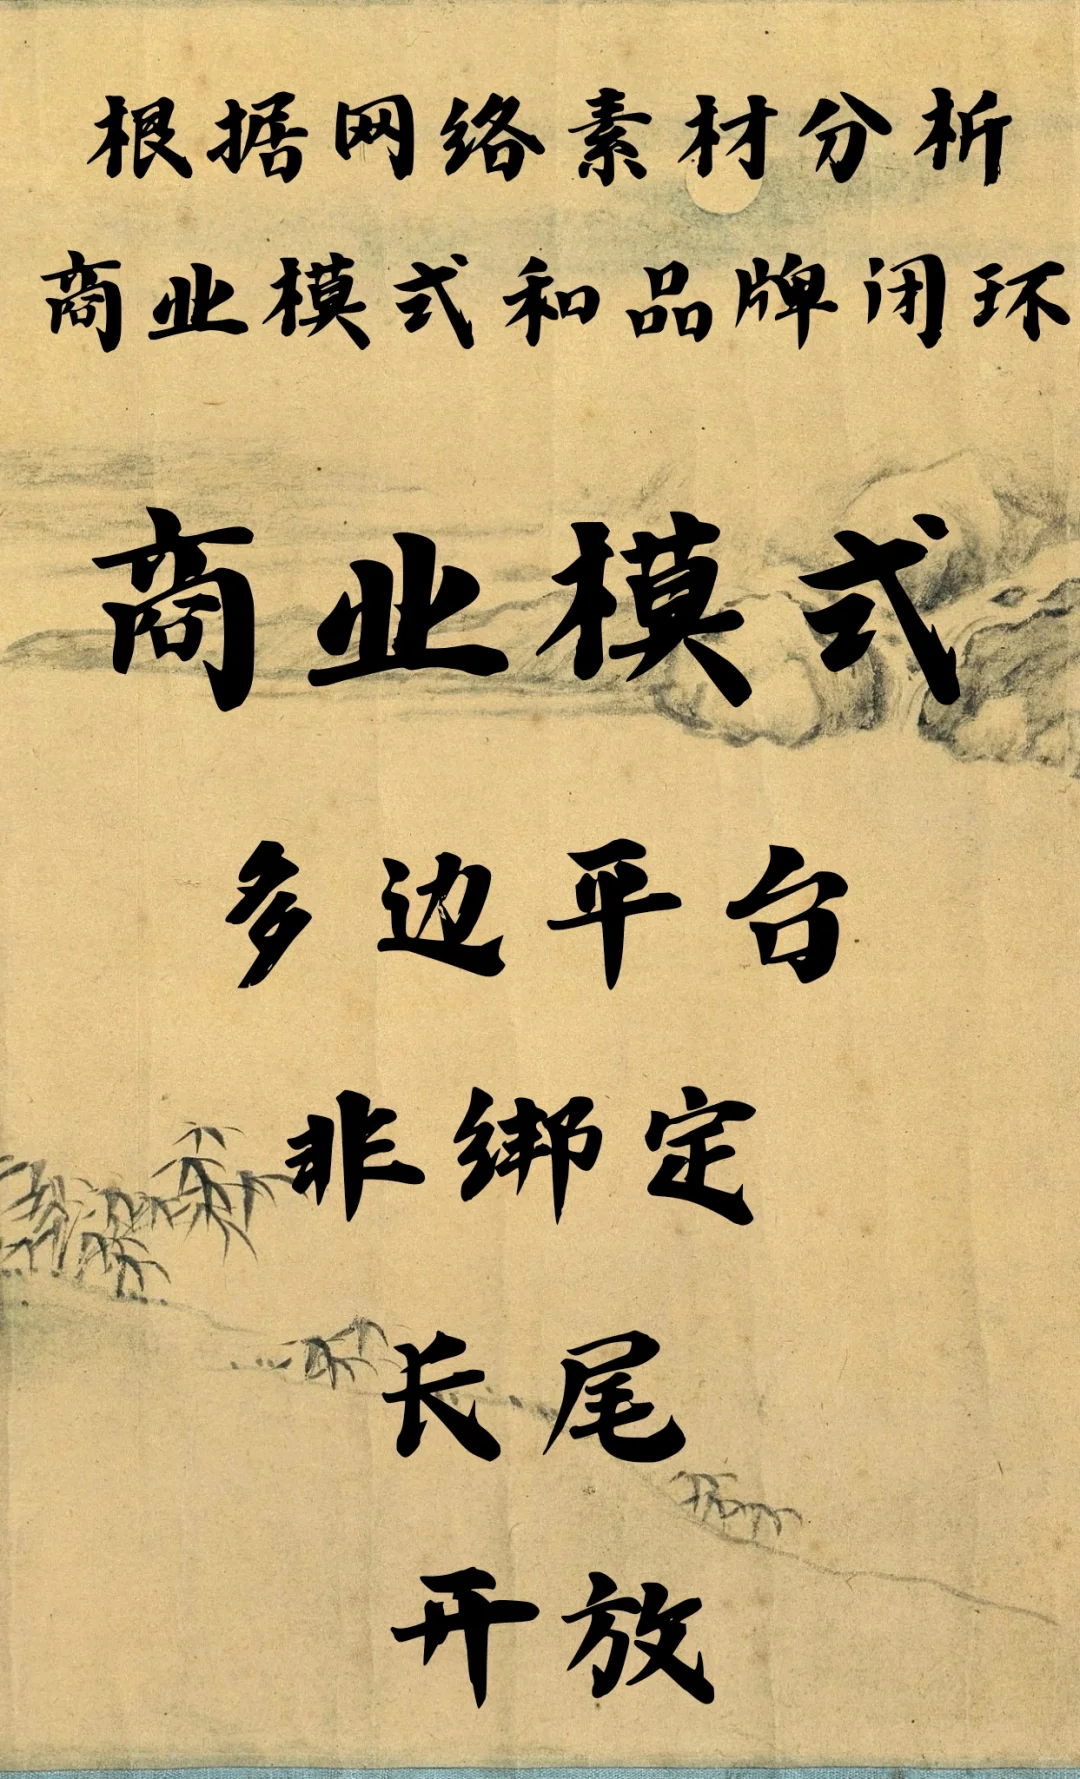 根据网络素材分析
商业模式和品牌闭环
商业模式
多边平台
非绑定
长尾
开放